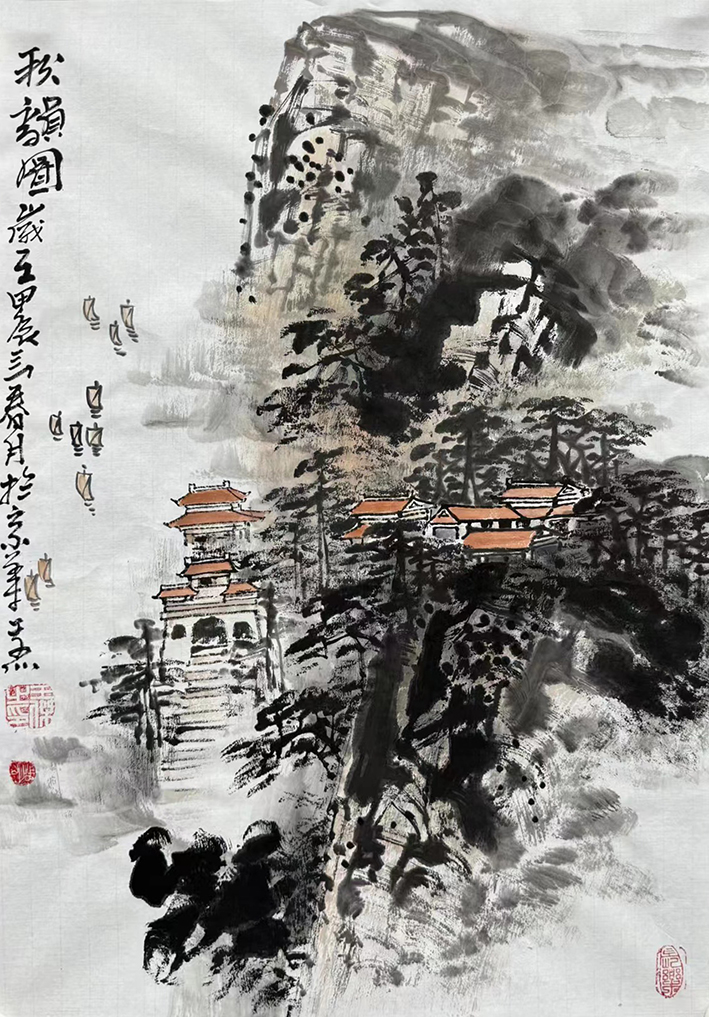 秋韻圖歲在甲辰三春月於京華